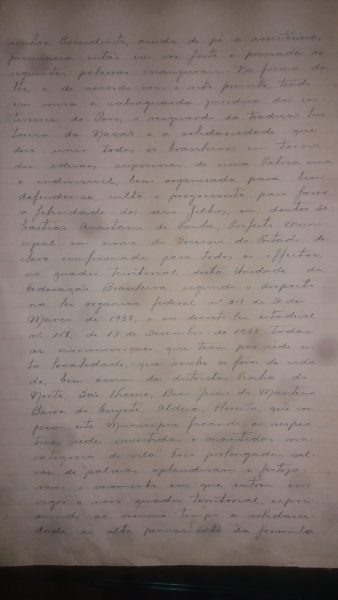 senhor Presidente, ainda de pé a assistencia,
pronuncia então em voz forte e pausada as
seguintes palavras inaugurais. Na forma da
lei, e de accordo com o rito previsto, tendo
em mira a salvaguarda juridica dos in-
teresses do Povo, o resguardo da tradição his-
torica da Nação e a solidariedade que
deve unir todos os brasileiros em torno
dos ideaes superiores de uma Patria una
e indivisivel, bem organizada para bem
defender-se culta e progressista para fazer
a felicidade dos seus filhos, eu, doutor Se-
bastião Anastacio de Paula, Prefeito Muni-
cipal, em nome do Governo do Estado, de-
claro confirmados para todos os effeitos,
no quadro territorial desta Unidade da
Federação Brasileira segundo o disposto
na lei organica federal nº 311 de 2 de
Março de 1938, e no decreto lei estadual
nº de 17 de Dezembro de 1938, todas
as circunscripções que teem por séde es-
ta localidade, que recebe os fóros de cida-
de, bem assim dos districtos
Norte, São Thomé, Bom Jesus do
Barra do Cuyeté, Aldeia, que com-
poem este Municipio ficando as respec-
tivas sédes investidas e mantidas na
categoria de vila" Prolongadas sal-
vas de palmas aplaudiram e festeja-
ram o momento em que entrou em
vigor o novo quadro territorial, expri-
mindo ao mesmo tempo a solidarie-
dade ao alto pensamento da formula